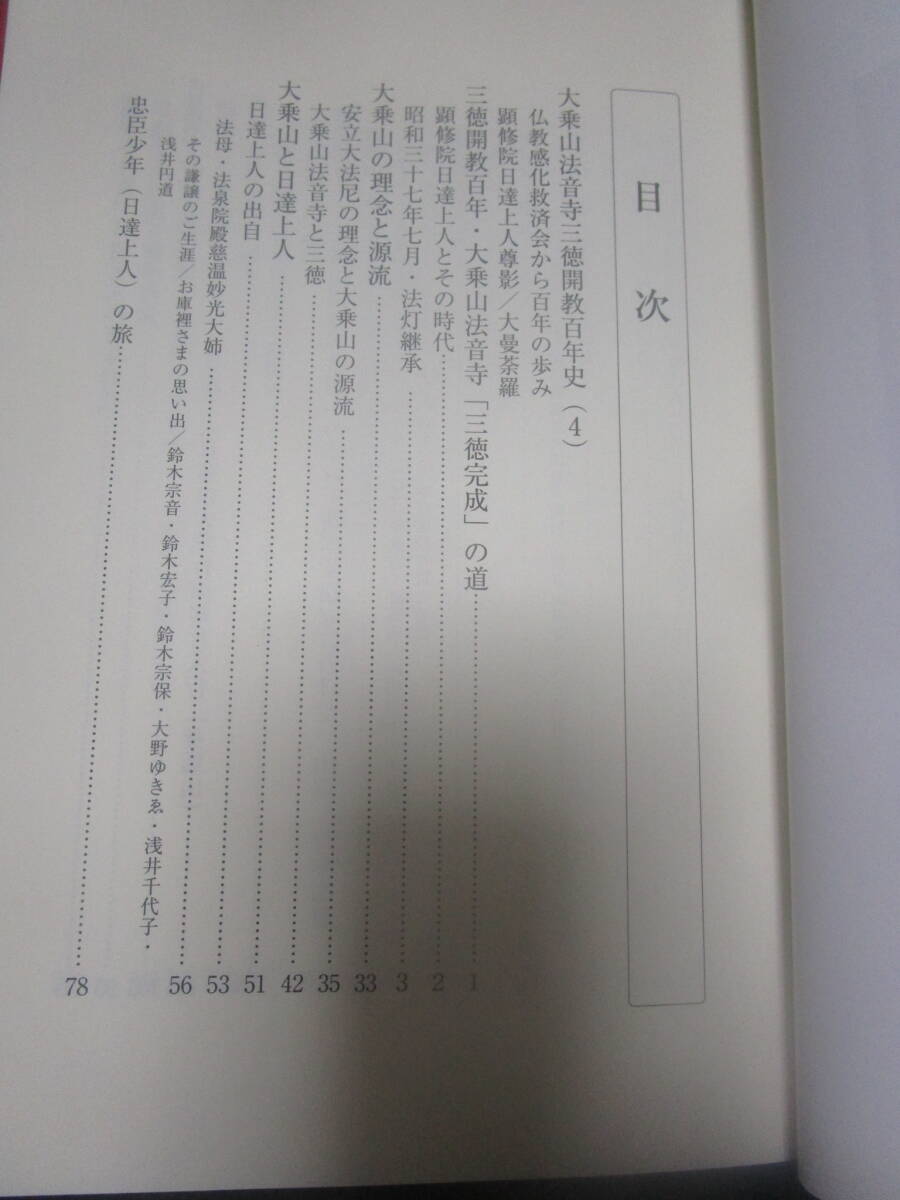 目次
大乗山法音寺三徳開教百年史（4）
仏教感化救済会から百年の歩み
顕修院日達上人尊影／大曼荼羅
三徳開教百年・大乗山法音寺「三徳完成」の道 1
顕修院日達上人とその時代 2
昭和三十七年七月・法灯継承 3
大乗山の理念と源流 33
安立大法尼の理念と大乗山の源流 35
大乗山法音寺と三徳 42
大乗山と日達上人 51
日達上人の出自 53
法母・法泉院殿慈温妙光大姉 56
その謙譲のご生涯／お庫裡さまの思い出／鈴木宗音・鈴木宏子・鈴木宗保・大野ゆきゑ・浅井千代子・
浅井円道
忠臣少年（日達上人）の旅 78